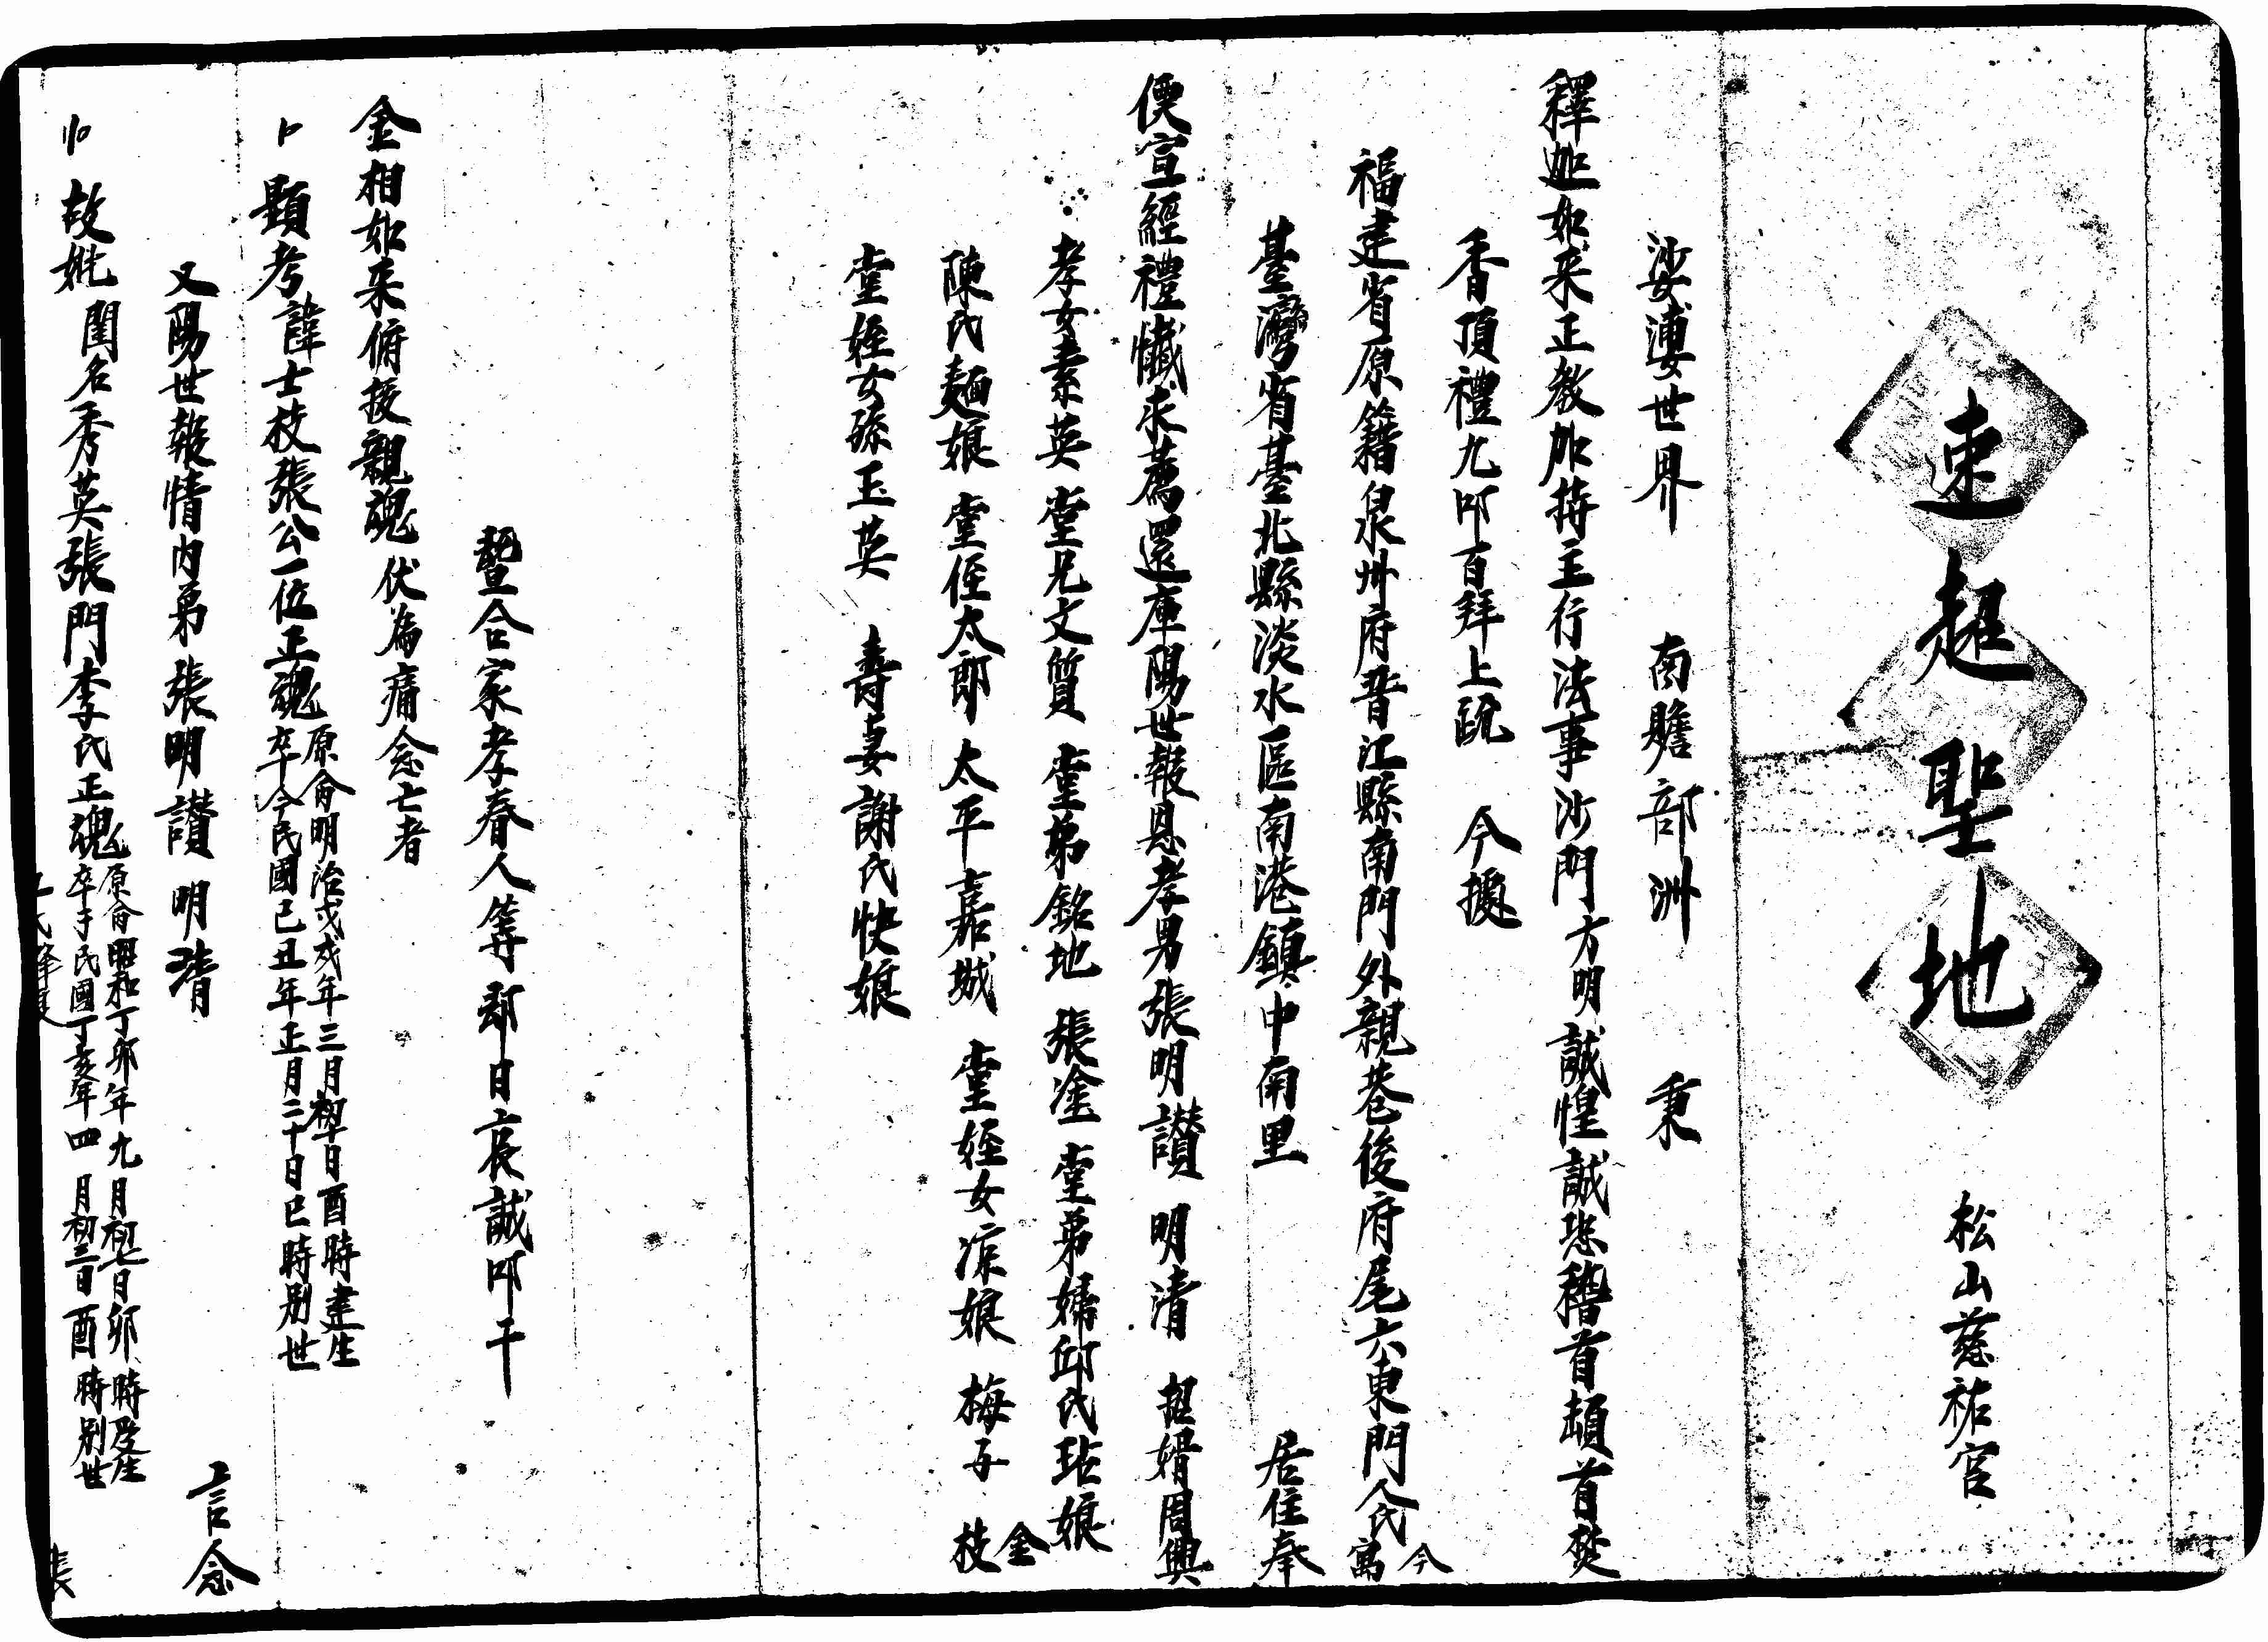 速超聖地　松山慈祐宮
娑婆世界　南贍部洲　秉
釋迦如來正教加持主行法事沙門方明誠惶誠恐稽首頓首焚
香頂禮九叩百拜上說　今據
福建省原籍泉州府晋江縣南門外親巷後府尾六東門人氏今寓
臺灣省臺北縣淡水區南港鎮中南里　居住奉
便宣經禮懺求薦還庫陽世報恩孝男張明讃　明清　招婿周興
孝女素英　堂兄文質　堂弟銘地　張塗　堂弟婦邱氏玷娘
陳氏麺娘　堂侄太郎　太平　嘉城　堂姪女涼娘　梅子　金枝
堂姪女孫玉英　壽妻謝氏快娘
暨合家孝眷人等即日哀誠叩干
金相如来俯接親魂　伏為痛念亡者
顕考諱士枝張公一位正魂　原命明治戊戌年三月初十日酉時建生
卒今民國己丑年正月二十日巳時別世
又陽世報情内弟　張明讃　明清　言念
故妣閨名秀英張門李氏正魂　原命昭和丁卯年九月初七日卯時瑞生
卒于民國丁亥年四月初三日酉時別世